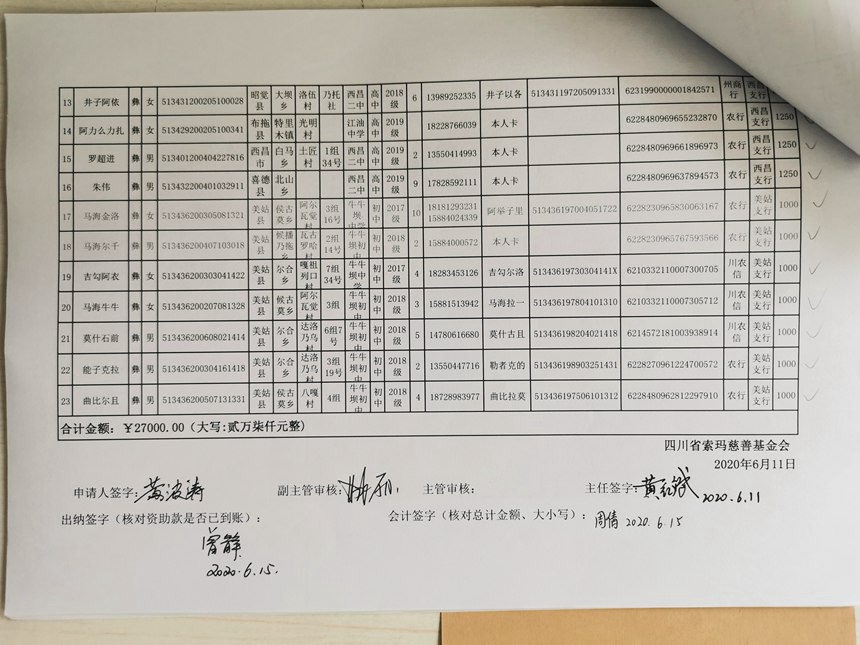 13 井子阿依 彝 女 513431200205100028 昭觉县 大坝乡 洛伍村 乃托社 西昌二中 高中 2018级 6 13989252335 井子以各 513431197205091331 6231990000001842571 州商行
14 阿力么力扎 彝 女 513429200205100341 布拖县 特里木镇 光明村 江油中学 高中 2019级 18228766039 本人卡 6228480969655232870 农行 西昌支行 1250
15 罗超进 彝 男 513401200404227816 西昌市 白马乡 土匠村 1组34号 西昌二中 高中 2018级 2 13550414993 本人卡 6228480969661896973 农行 西昌支行 1250
16 朱伟 彝 男 513432200401032911 喜德县 北山乡 西昌二中 高中 2018级 9 17828592111 本人卡 6228480969637894573 农行 西昌支行 1250
17 马海金洛 彝 女 513436200305081321 美姑县 侯古莫乡 阿尔瓦觉村 3组16号 牛牛坝 初中 2017级 10 18181293231 15884024339 阿举子里 513436197004051722 6228230965830063167 农行 美姑支行 1000
18 马海尔千 彝 男 513436200407103018 美姑县 侯播乃拖 瓦古罗哈村 2组14号 牛牛坝初中 初中 2018级 2 15884000572 本人卡 6228230965767593566 农行 美姑支行 1000
19 吉勾阿衣 彝 女 513436200303041422 美姑县 尔合乡 嘎祖列口村 7组34号 牛牛坝中学 初中 2017级 4 18283453126 吉勾尔洛 51343619730304141X 6210332110007300705 川农信 美姑支行 1000
20 马海牛牛 彝 女 513436200207081328 美姑县 候古莫乡 阿尔瓦觉村 3组 牛牛坝初中 初中 2018级 3 15881513942 马海拉一 513436197804101310 6210332110007305712 川农信 美姑支行 1000
21 莫什石前 彝 男 513436200608021414 美姑县 尔合乡 达洛乃乌村 6组7号 牛牛坝初中 初中 2018级 5 14780616680 莫什古且 513436198204021418 6214572181003938914 川农信 美姑支行 1000
22 能子克拉 彝 男 513436200304161418 美姑县 尔合乡 达洛乃乌村 3组19号 牛牛坝初中 初中 2018级 2 13550447716 勒者克的 513436198903251431 6228270961224700572 农行 美姑支行 1000
23 曲比尔且 彝 男 513436200507131331 美姑县 侯古莫乡 八嘎村 4组 牛牛坝初中 初中 2018级 4 18728983977 曲比拉莫 513436197506101312 6228480962812297910 农行 美姑支行 1000
合计金额：￥27000.00（大写:贰万柒仟元整）
四川省索玛慈善基金会
2020年6月11日
申请人签字：黄波涛 副主管审核： 主管审核： 主任签字：黄红斌 2020.6.11
出纳签字（核对资助款是否已到账）： 会计签字（核对总计金额、大小写）：周倩 2020.6.15
曾静
2020.6.15.